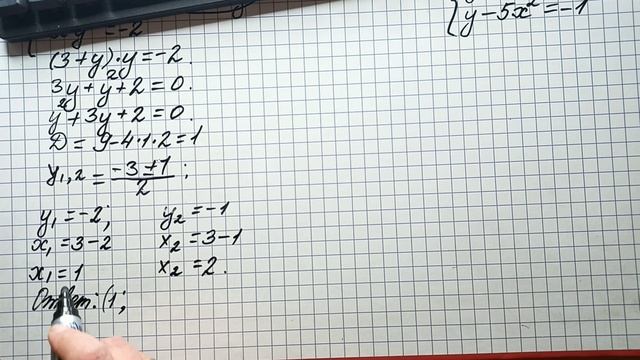 xy = -2
y - 5x² = -1
(3+y)·y = -2.
3y + y² + 2 = 0.
y² + 3y + 2 = 0.
D = 9 - 4·1·2 = 1
y₁,₂ = (-3 ± 1)/2;
y₁ = -2; y₂ = -1
x₁ = 3 - 2 x₂ = 3 - 1
x₁ = 1 x₂ = 2.
Ответ: (1;